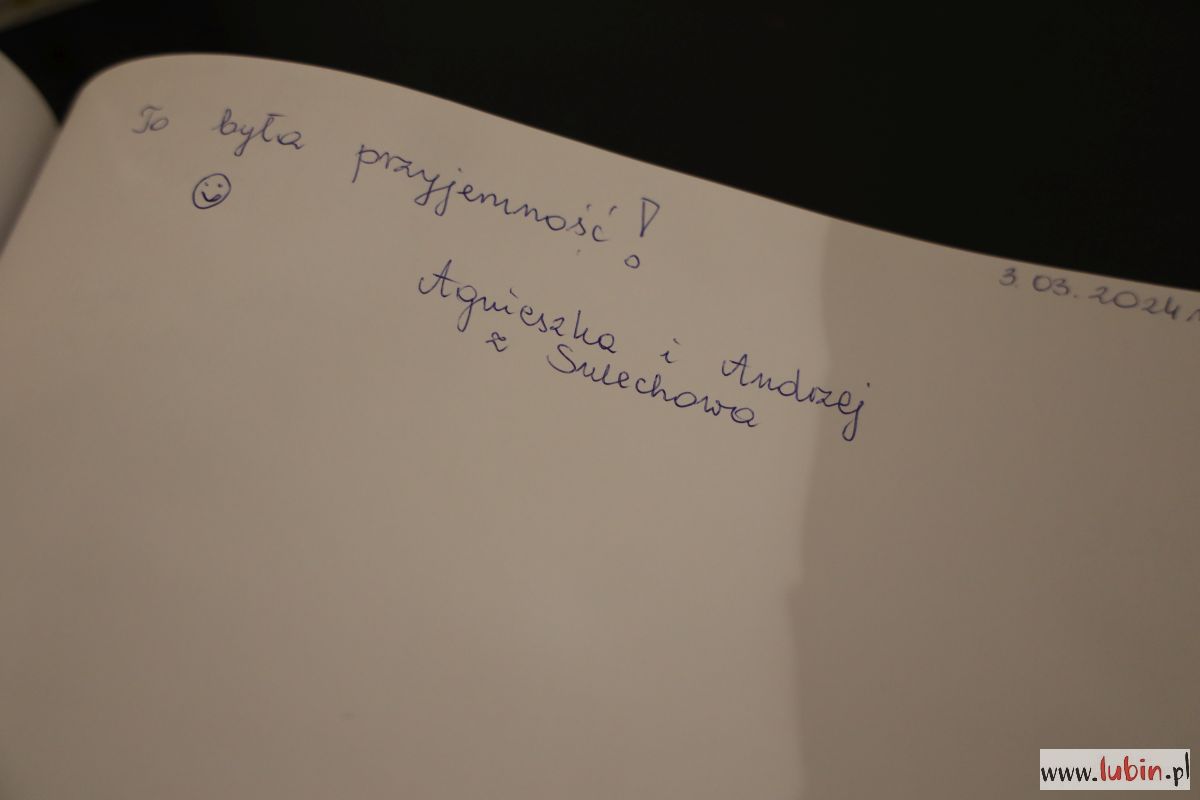 To była przyjemność!
3.03.2024 r
Agnieszka i Andrzej
z Sulechowa
www.lubin.pl